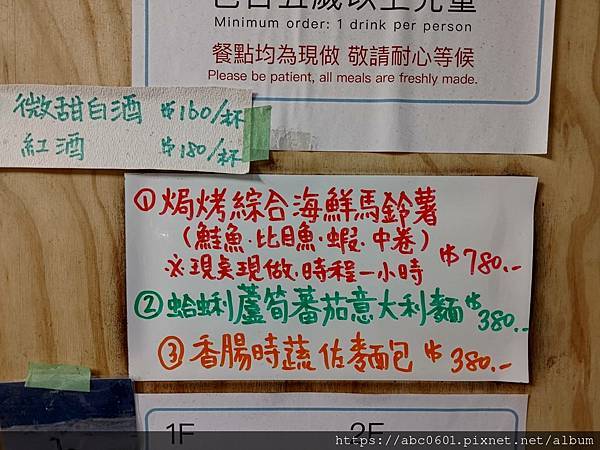 包含五歲以上兒童
Minimum order: 1 drink per person
餐點均為現做 敬請耐心等候
Please be patient, all meals are freshly made.
微甜白酒 $160/杯
紅酒 $180/杯
①焗烤綜合海鮮馬鈴薯
(鮭魚.比目魚.蝦.中卷)
※現桌現做.時程一小時 $780.-
②蛤蜊蘆筍蕃茄意大利麵 $380.-
③香腸時蔬佐麵包 $380.-
1F 2F
https://abc0601.pixnet.net/album